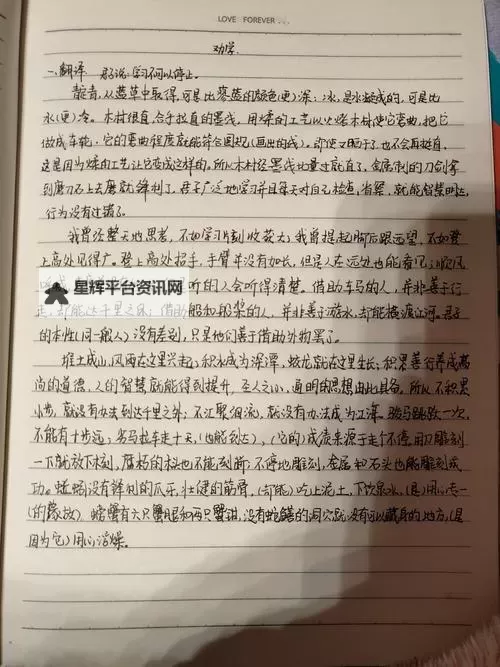 LOVE FOREVER...
劝学
一.翻译 君子说:学习不可以停止。
靛青,从蓝草中取得,可是比蓼蓝的颜色(更)深;冰,是水凝成的,可是比
水(更)冷。木材很直,合乎拉直的墨线,用煣的工艺以火烤木材使它弯曲,把它
做成车轮,它的弯曲程度就能符合圆规(画出的线)。即使又晒干了,也不会再挺直,
这是因为煣的工艺让它变成这样的。所以木材经墨线比量过就直了,金属制的刀剑拿
到磨刀石上去磨就锋利了,君子广泛地学习并且每天对自己检查,省察,就能智慧明达,
行为没有过错了。
我曾经整天地思考,不如学习片刻收获大;我曾提起脚后跟远望,不如登
上高处见得广。登上高处招手,手臂并没有加长,但是人在远处也能看见;顺风
听的人会听得清楚。借助车马的人,并非善于行
走,却能达千里之外;借助船和船桨的人,并非善于游水,却能横渡江河。君子
的本性(同一般人)没有差别,只是他们善于借助外物罢了。
堆土成山,风雨在这里兴起;积水成为深潭,蛟龙就在这里生长;积累善行养成高
尚的道德,人的智慧就能得到提升,圣人之心,通明的思想由此具备。所以不积累
小步,就没有办法到达千里之外;不汇聚细流,就没有办法成为江海。骏马跳跃一次,
不能有十步远;劣马拉车走十天,(也能到达),(它的)成质来源于走个不停。用刀雕刻
一下就放下木刻,腐朽的木头也不能刻断;不停地雕刻,金属和石头也能雕刻成
功。蚯蚓没有锋利的爪牙,壮健的筋骨,(却能)吃上泥土,下饮泉水,(是)用心专一
(的缘故)。螃蟹有六只蟹腿和两只蟹钳,没有蛇鳝的洞穴就没有可以藏身的地方,(是
因为它)用心浮燥。
星辉平台资讯网